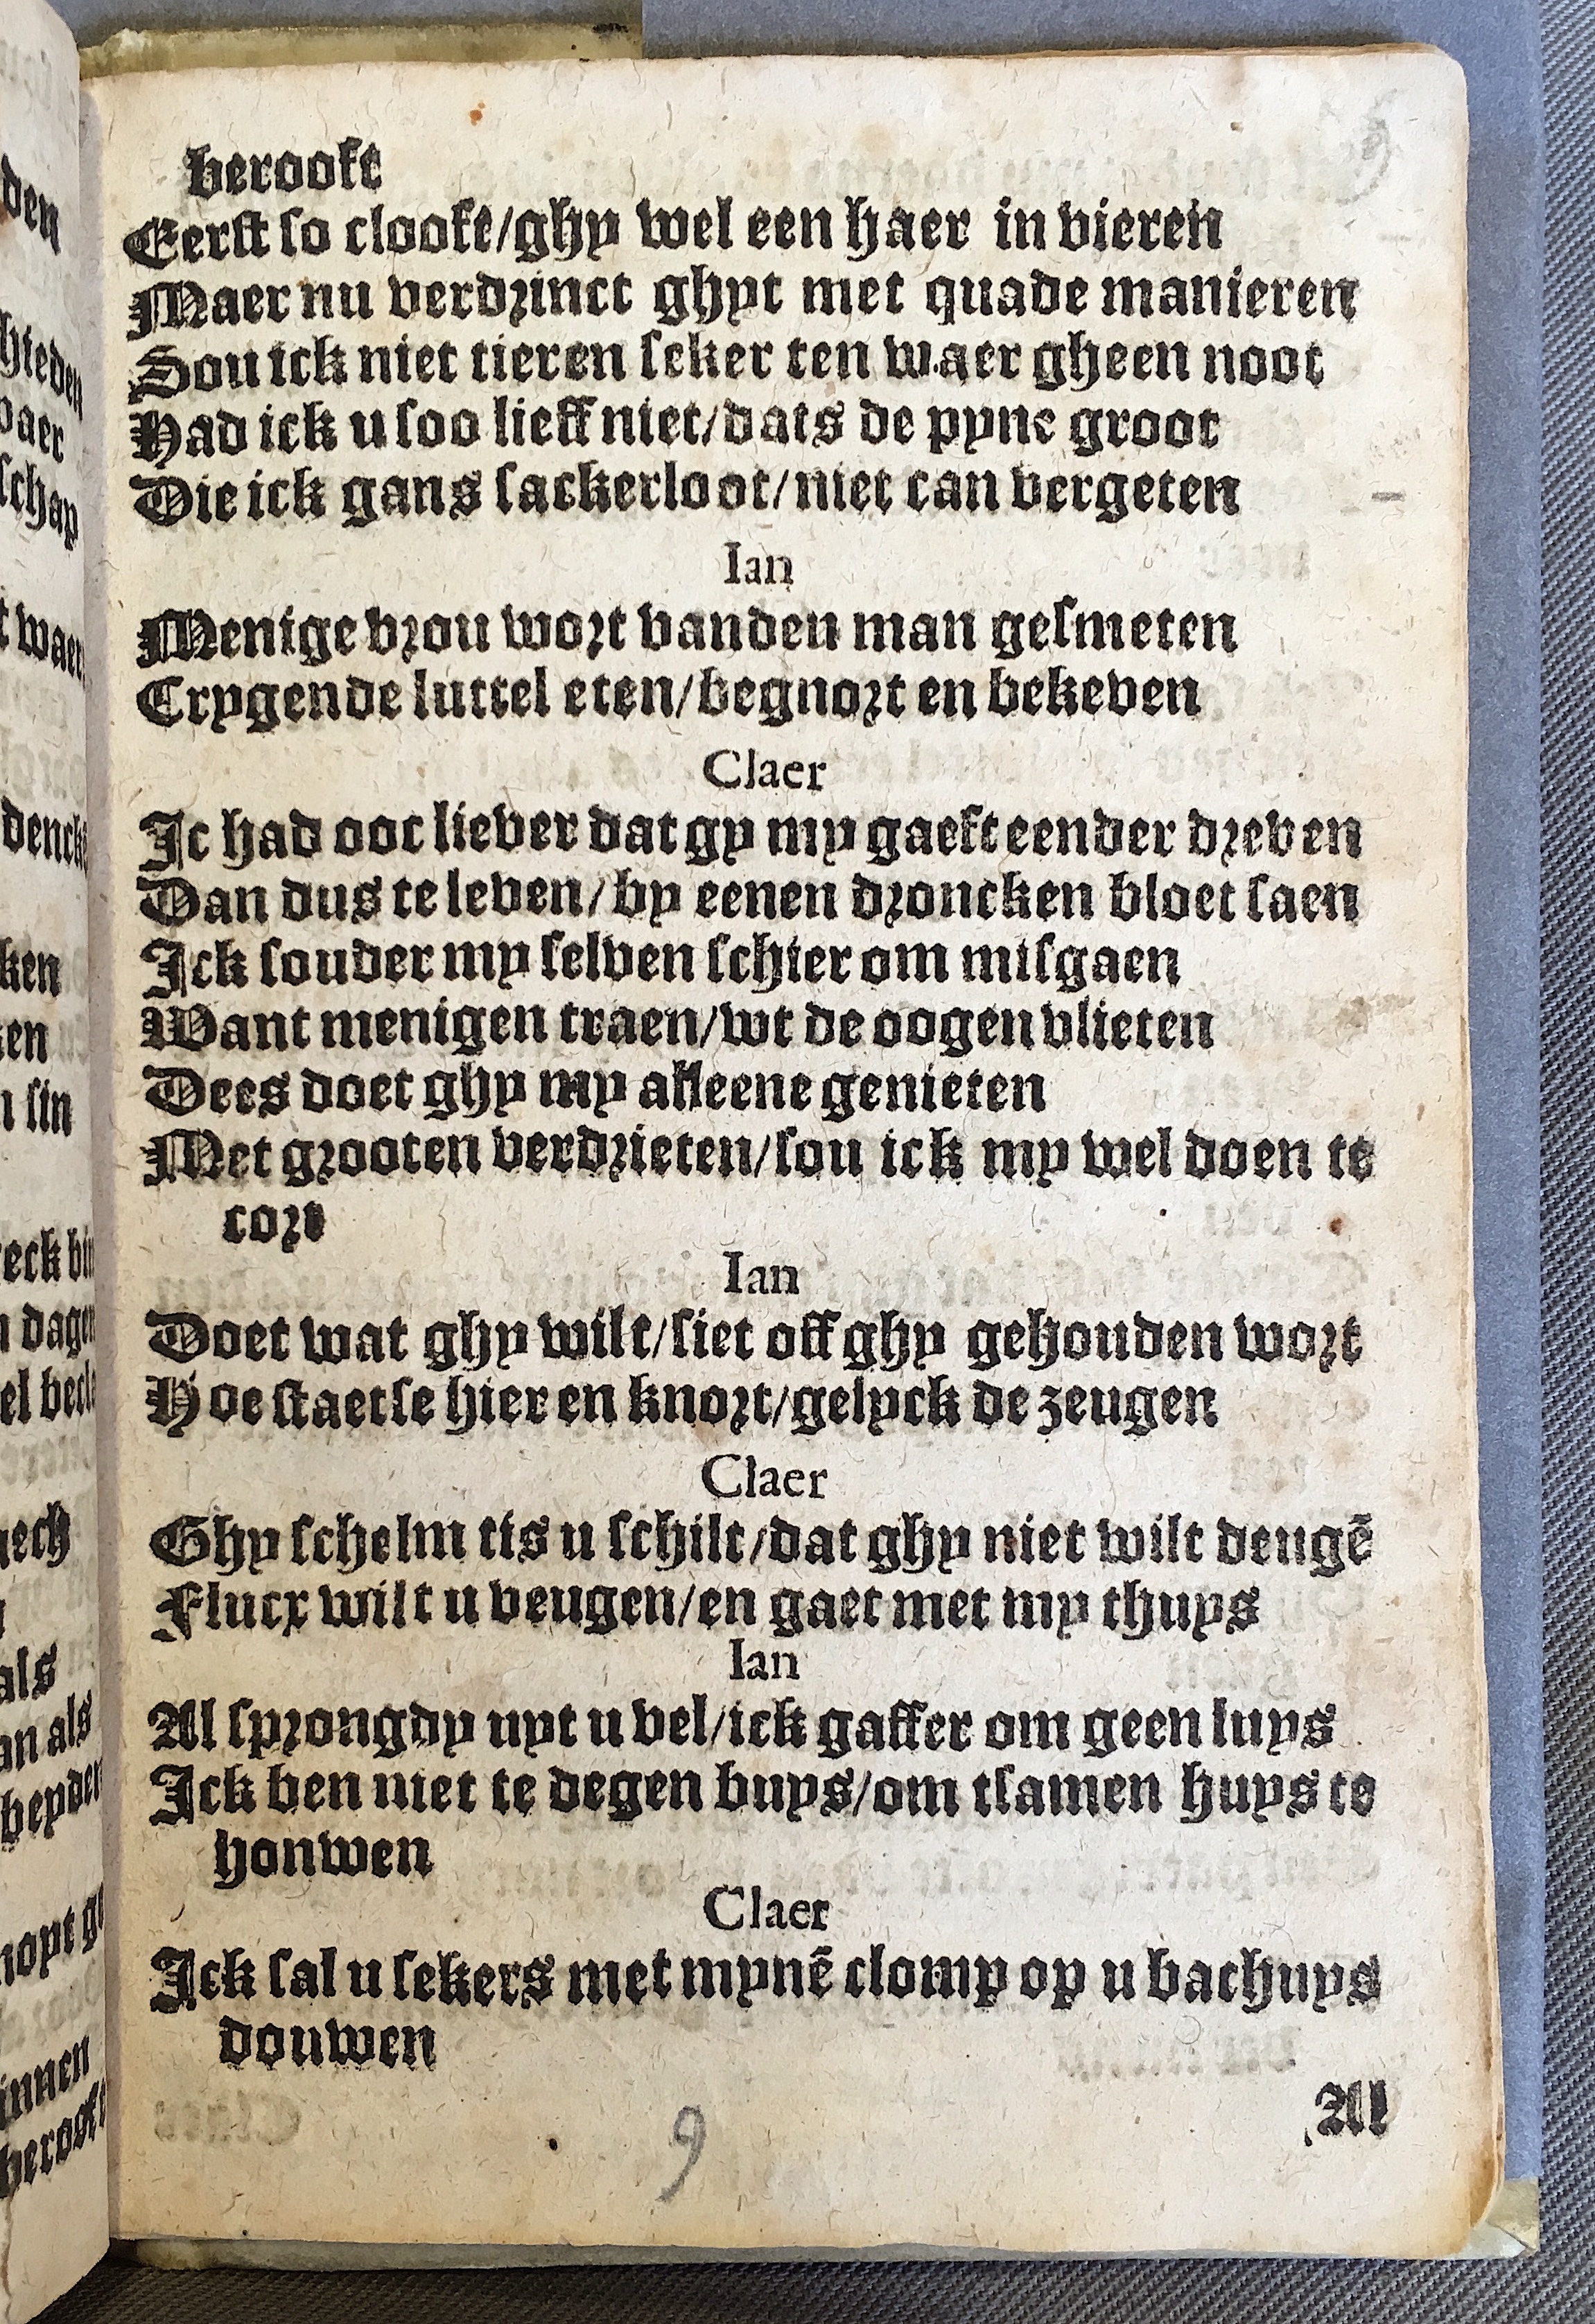 berooft
Eerst so clooft/ghy wel een haer in vieren
Maer nu verdrinct ghyt met quade manieren
Sou ick niet tieren seker ten waer gheen noot
Had ick u soo lieff niet/dats de pyne groot
Die ick gans sackerloot/niet can vergeten
Ian
Menige vrou wort vanden man gesmeten
Crygende luttel eten/begnort en bekeven
Claer
Ic had ooc liever dat gy my gaeft eender dreven
Dan dus te leven/by eenen droncken bloet saen
Ick souder my selven schier om misgaen
Want menigen traen/wt de oogen vlieten
Dees doet ghy my alleene genieten
Met grooten verdrieten/sou ick my wel doen te
cort
Ian
Doet wat ghy wilt/siet off ghy gehouden wort
Hoe staetse hier en knort/gelyck de zeugen
Claer
Ghy schelm tis u schilt/dat ghy niet wilt deugē
Flucx wilt u veugen/en gaet met my thuys
Ian
Al sprongdy uyt u vel/ick gaffer om geen luys
Ick ben niet te degen buys/om tsamen huys te
honwen
Claer
Ick sal u sekers met mynē clomp op u bachuys
douwen
Al
9
den
hteden
schap
t waer
dencke
ken
n sin
eck bin
n dagen
als
an als
beyder
nopt
innen
berooft